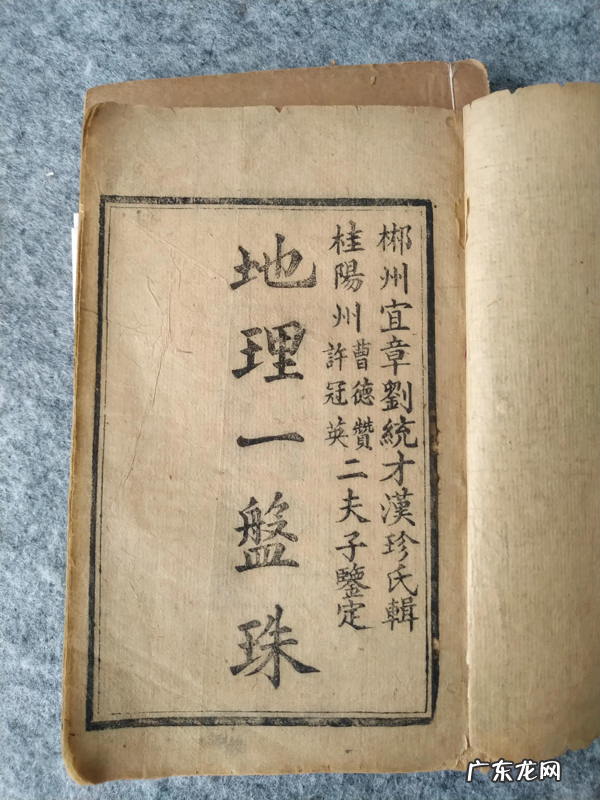 郴州宜章劉統才漢珍氏輯
桂陽州曹德贊許冠英二夫子鑒定
地理一盤珠
广东龙网